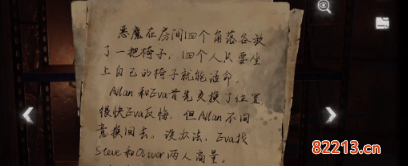 恶魔在房间四个角落各放
了一把椅子，四个人只要坐
上自己的椅子就能活命。
Allan和Eva首先交换了位置，
很快Eva反悔，但Allan不同
意换回去，没办法，Eva找
Steve和Oliver两人商量，
82213.cn